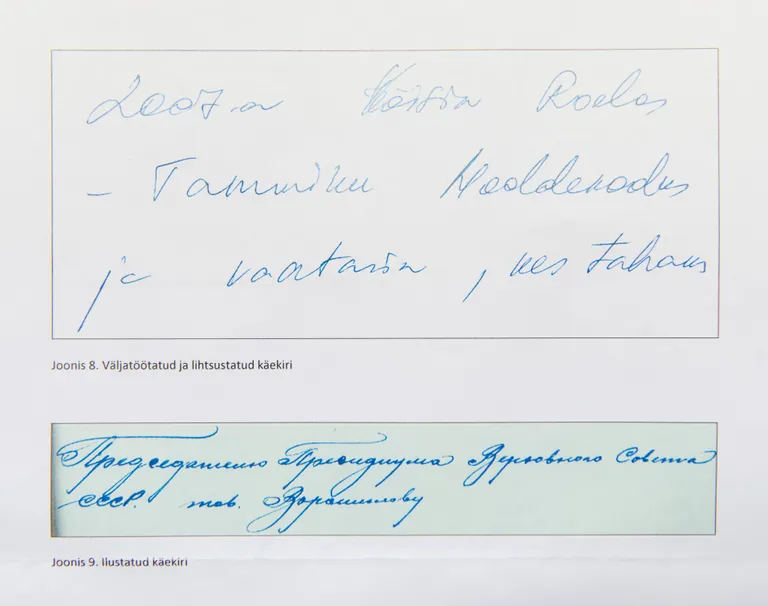 2007.a Käisin Roelas
– Tammiku Hooldekodus
ja vaatasin , kes tahaks
Joonis 8. Väljatöötatud ja lihtsustatud käekiri
Председателю Президиума Верховного Совета
СССР. тов. Ворошилову
Joonis 9. Ilustatud käekiri